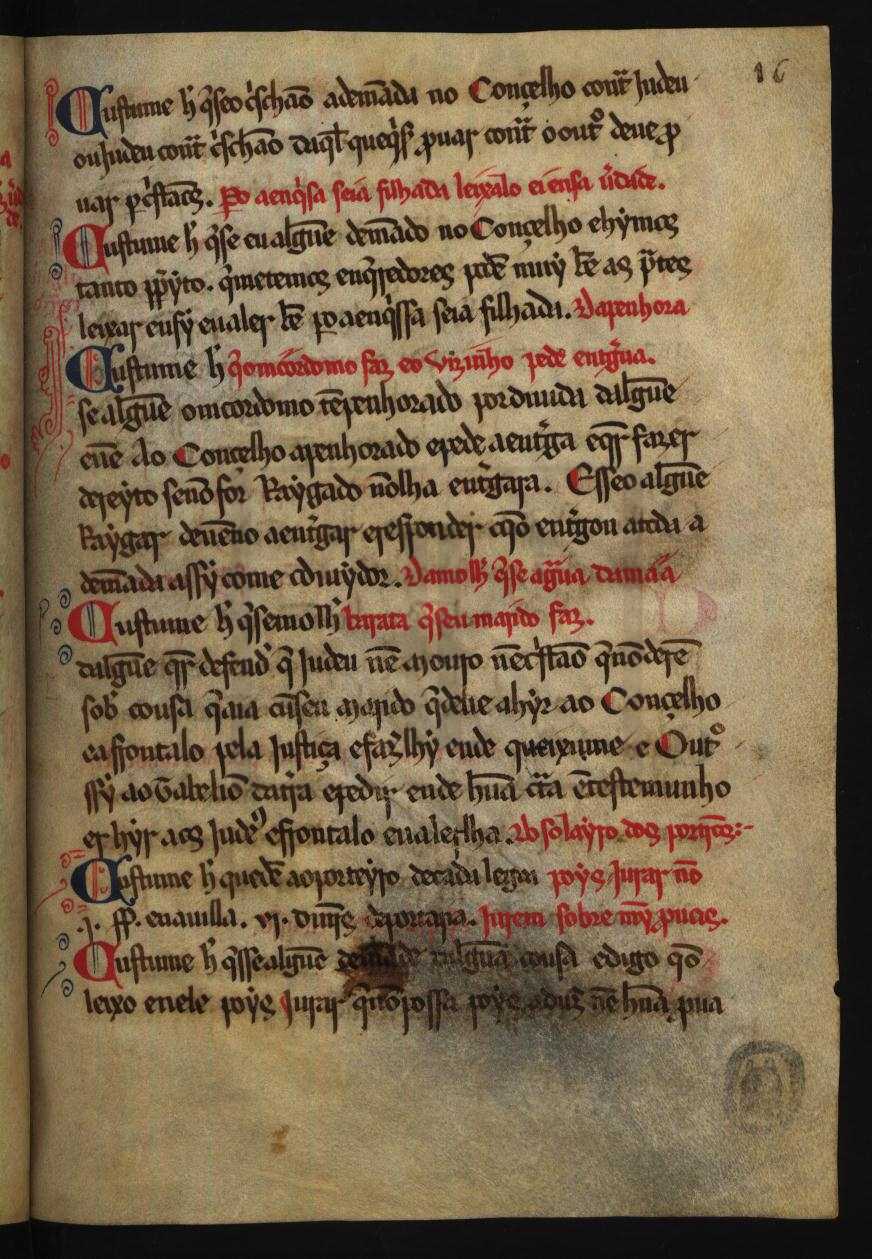 16
Custume h̃ q̃seo c̃schão ademãda no Concelho cont̃ Judeu
ou Judeu cont̃ c̃schão daq̃l queq̃r ꝓuar cont̃ o out̊ deue ꝓ
uar ꝑ c̃stãos. Po aenq̃sa seia filhada leixalo ei ensa ũdade.
Custume h̃ q̃se eu algũe demãdo no Concelho ehymos
tanto p̃p̃yto. q̃metemos enq̃redores podẽ muy bẽ as p̃tes
leixar eu sy eualer bẽ po aenq̃ssa seia filhada. Da penhora
Custume h̃ q̃omoordomo faz eo vizinho pede ent̃gua.
se algũe omoordomo tẽ penhorado por diuida dalgũe
euẽ Ao Concelho apenhorado epede aent̃ga eq̃r fazer
dereyto se nõ for Raygado nõ lha ent̃gara. Esseo algũe
Raygar deuẽ no aent̃gar eresponder cõo ent̃gou atoda a
demãda assy come o diuydor. Da molh̃ q̃se ag̃ua
Custume h̃ q̃se molh̃ barata q̃seu marido faz.
dalgũe q̃r defend̃ q̃ Judeu nẽ mouro nẽ c̃stão q̃ nõ dem̃
sob̃ cousa q̃aia cũ seu marido q̃deue ahyr ao Concelho
eaffrontalo pela Justiça efaz̃lhy ende queixume e Out̊
ssy ao Tabeliõ da t̃ra epedir ende hũa c̃ta ẽ testemunho
er hyr aos Jude͛ effrontalo eualer lha. Do solayro dos porteyros
Custume h̃ que dẽ ao porteyro decada legoa poys Jurar nõ
.j. ss̃. enauilla. vj. dinr̃s Jurem sobre
Custume h̃ q̃sse algũe demãde dalgũa cousa edigo q̃o
leixo en ele poys Jurar q̃ nõ possa poys aduz̃ nẽ hũa ꝓua